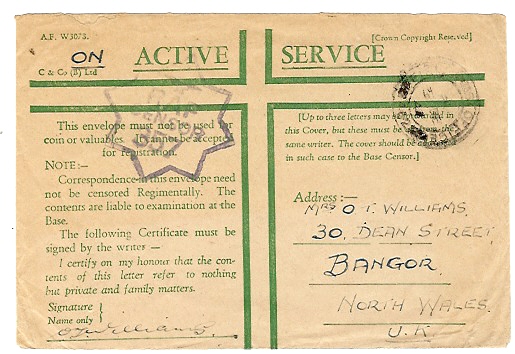 A.F. W3078.
[Crown Copyright Reserved]
ON
ACTIVE SERVICE
C & Co (B) Ltd
CENSOR
This envelope must not be used for
coin or valuables. It cannot be accepted
for registration.
NOTE:—
Correspondence in this envelope need
not be censored Regimentally. The
contents are liable to examination at the
Base.
The following Certificate must be
signed by the writer —
I certify on my honour that the con-
tents of this letter refer to nothing
but private and family matters.
Signature }
Name only
O T Williams.
[Up to three letters may be forwarded in
this Cover, but these must be from the
same writer. The cover should be addressed
in such case to the Base Censor.]
Address:—
MRS O T. WILLIAMS.
30. DEAN STREET
BANGOR.
NORTH WALES.
U.K